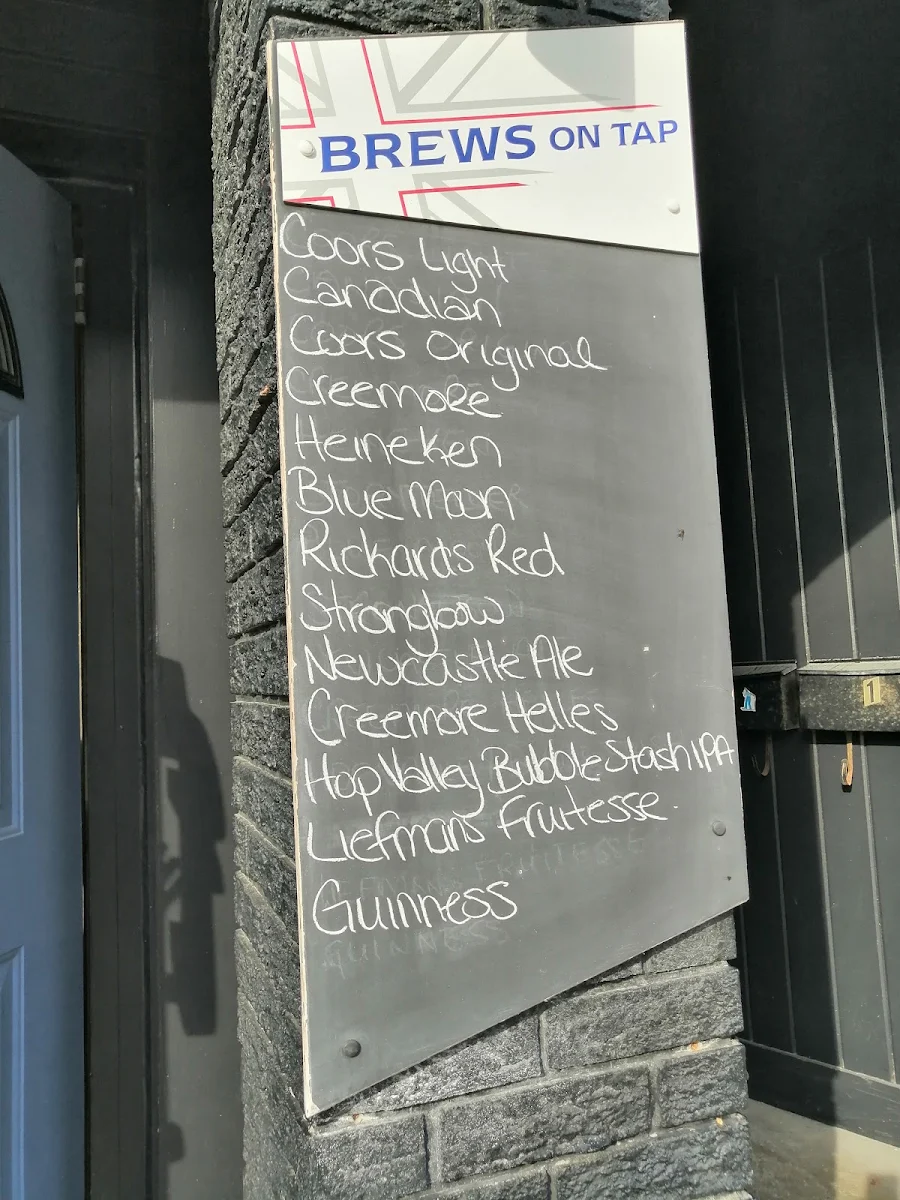 BREWS ON TAP
Coors Light
Canadian
Coors Original
Creemore
Heineken
Blue Moon
Rickards Red
Strongbow
Newcastle Ale
Creemore Helles
Hop Valley Bubble Stash IPA
Liefmans Fruitesse
Guinness
FRUITESSE
GUINNESS
1